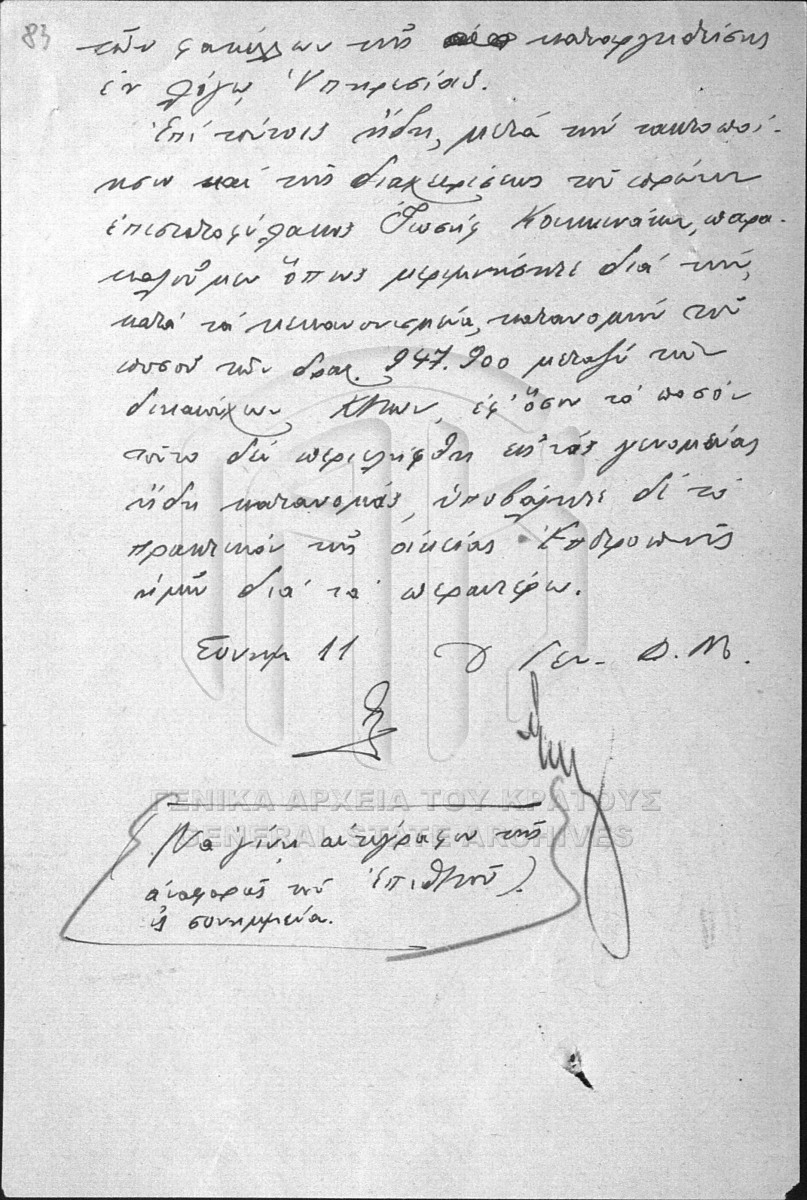 83
τῶν φακέλλων τῆς καταργηθείσης
ἐν λόγῳ Ὑπηρεσίας.
Ἐπί τούτοις ἤδη, μετά τήν τακτοποί-
ησιν καί τῆς διαχειρίσεως τοῦ πρώην
ἐπιστάτου φύλακος Ἰωσήφ Κοκκινάκη, παρα-
καλοῦμεν ὅπως μεριμνήσητε διά τήν,
κατά τά κεκανονισμένα, κατανομήν τοῦ
ποσοῦ τῶν δραχ. 947.900 μεταξύ τῶν
δικαιούχων Κ)των, ἐφ' ὅσον τό ποσόν
τοῦτο δέν περιελήφθη εἰς τάς γενομένας
ἤδη κατανομάς, ὑποβάλητε δέ τό
πρακτικόν τῆς οἰκείας Ἐπιτροπῆς
ἡμῖν διά τά περαιτέρω.
Συνημ 11 Ὁ Γεν. Δ. Μ.
ΓΕΝΙΚΑ ΑΡΧΕΙΑ ΤΟΥ ΚΡΑΤΟΥΣ
GENERAL STATE ARCHIVES
(Νά γίνῃ ἀντίγραφον τῆς
ἀναφορᾶς τοῦ Ἐπιθ)τοῦ).
ὡς συνημμένα.